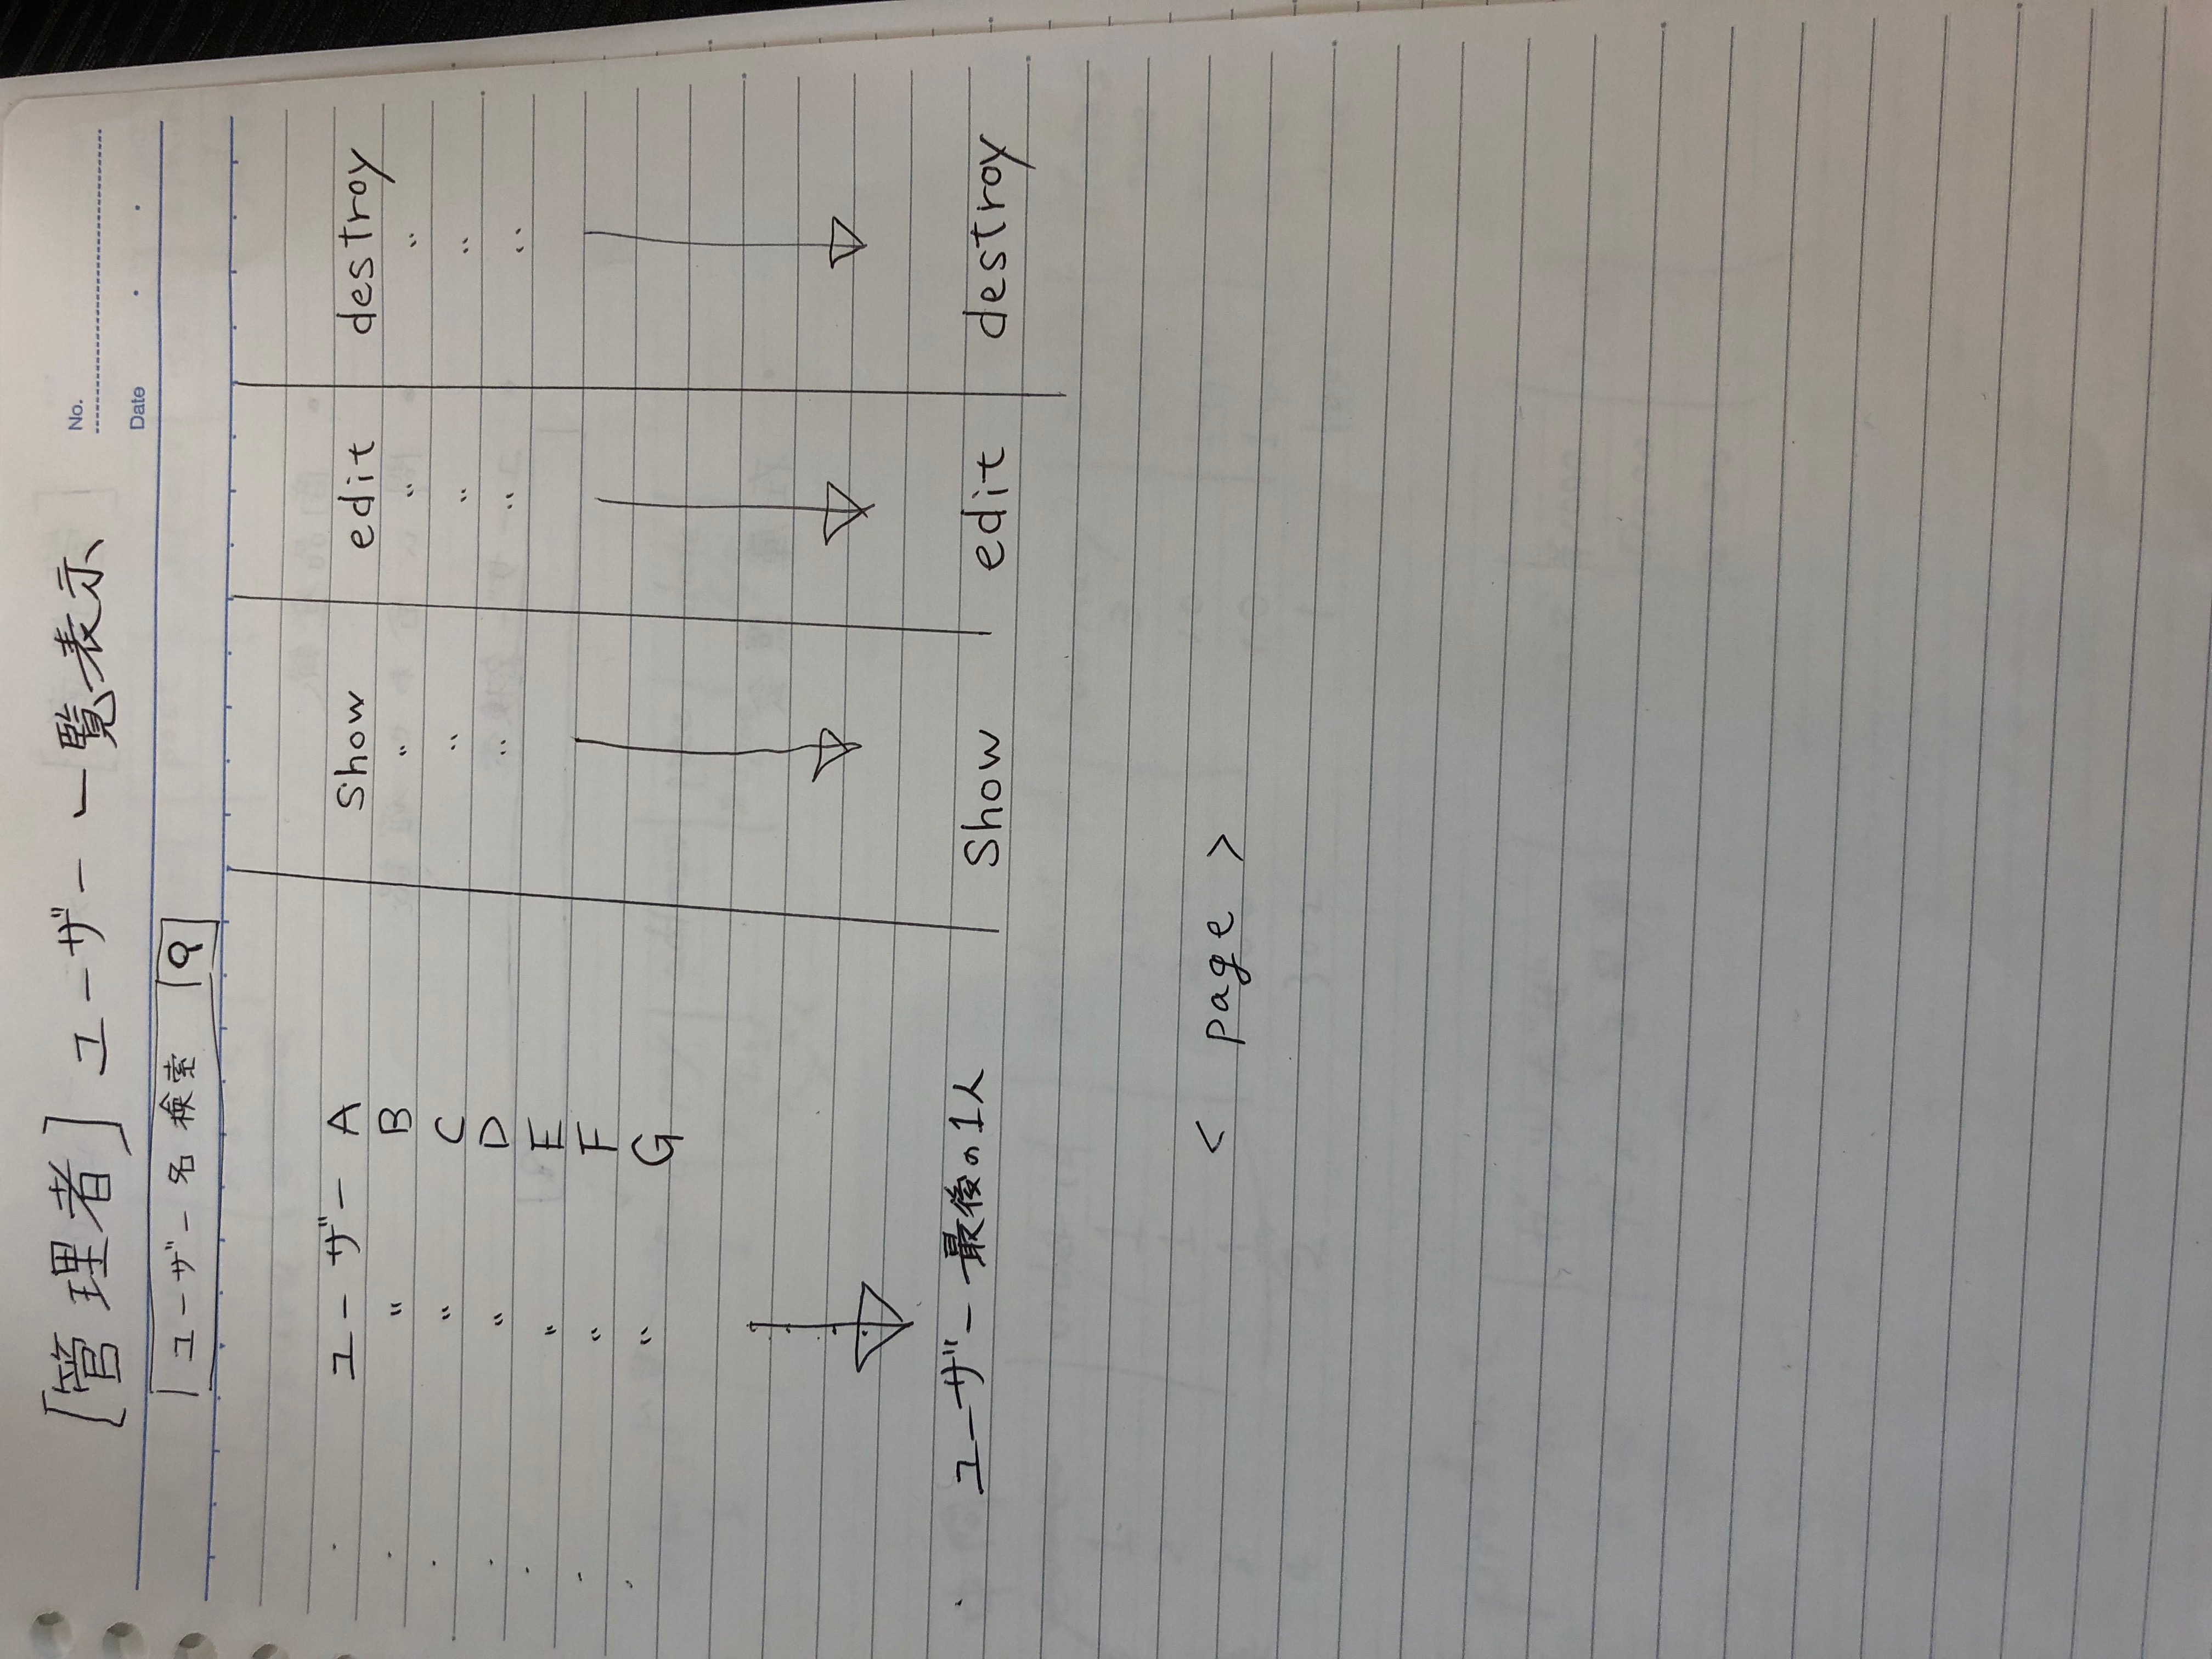 [管理者] ユーザー 一覧表示
No.
Date
ユーザー名検索
ユーザー A show edit destroy
〃 B 〃 〃 〃
〃 C 〃 〃 〃
〃 D 〃 〃 〃
〃 E
〃 F
〃 G
ユーザー 最後の1人 show edit destroy
< page >